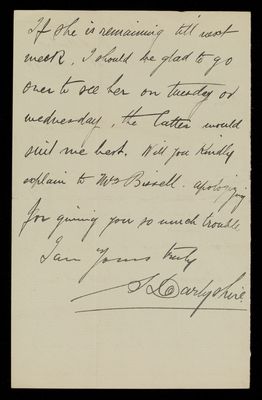 If she is remaining till next
week, I should be glad to go
over to see her on tuesday or
wednesday, the latter would
suit me best. Will you kindly
explain to Mrs Bissell. apologizing
for giving you so much trouble
I am Yours truly
S Darbyshire.